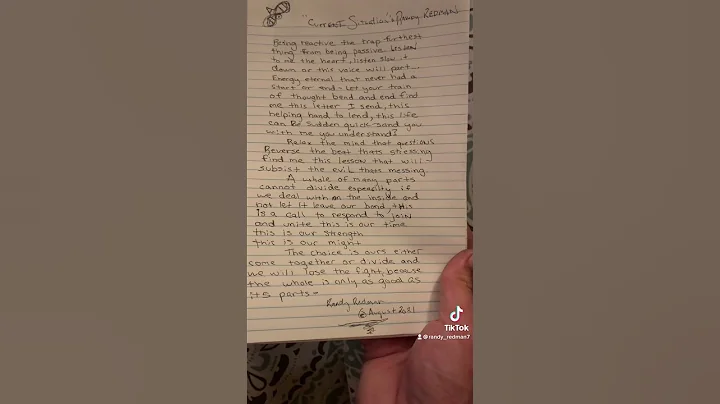 "Current Situation" Randy REDMAN
Being reactive the trap furthest
thing from being passive. Listen
to me the heart, listen slow it
down or this voice will part.
Energy eternal that never had a
start or end - Let your train
of thought bend and end find
me this letter I send, this
helping hand to lend, this life
can Be sudden quick sand you
with me you understand?
Relax the mind that questions
Reverse the beat thats stressing
find me this lesson that will
subsist the evil thats messing.
A whole of many parts
cannot divide especially if
we deal with on the inside and
not let it leave our hand, this
is a call to respond to join
and unite this is our time
this is our strength
this is our might
The choice is ours either
come together or divide and
we will lose the fight, because
the whole is only as good as
its parts -
Randy Redman
August 2021
TikTok
@randy_redman7